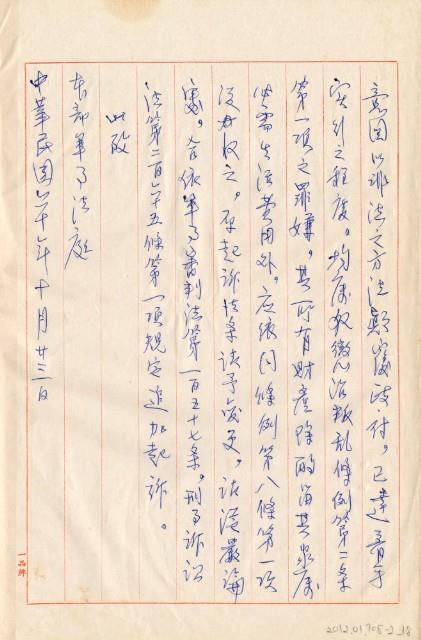 意圖以非法之方法顛覆政府。已達著手
實行之程度。均應犯懲治叛亂條例第二條
第一項之罪嫌。其所有財產除酌留其家屬
必需生活費用外。應依同條例第八條第一項
沒收之。原起訴法條請予變更。訴從嚴論
處。合依軍事審判法第一百五十七條。刑事訴訟
法第二百六十五條第一項規定追加起訴。
此致
本部軍事法庭
中華民國六十年十月廿三日
一品牌
2012.01.708-2_18